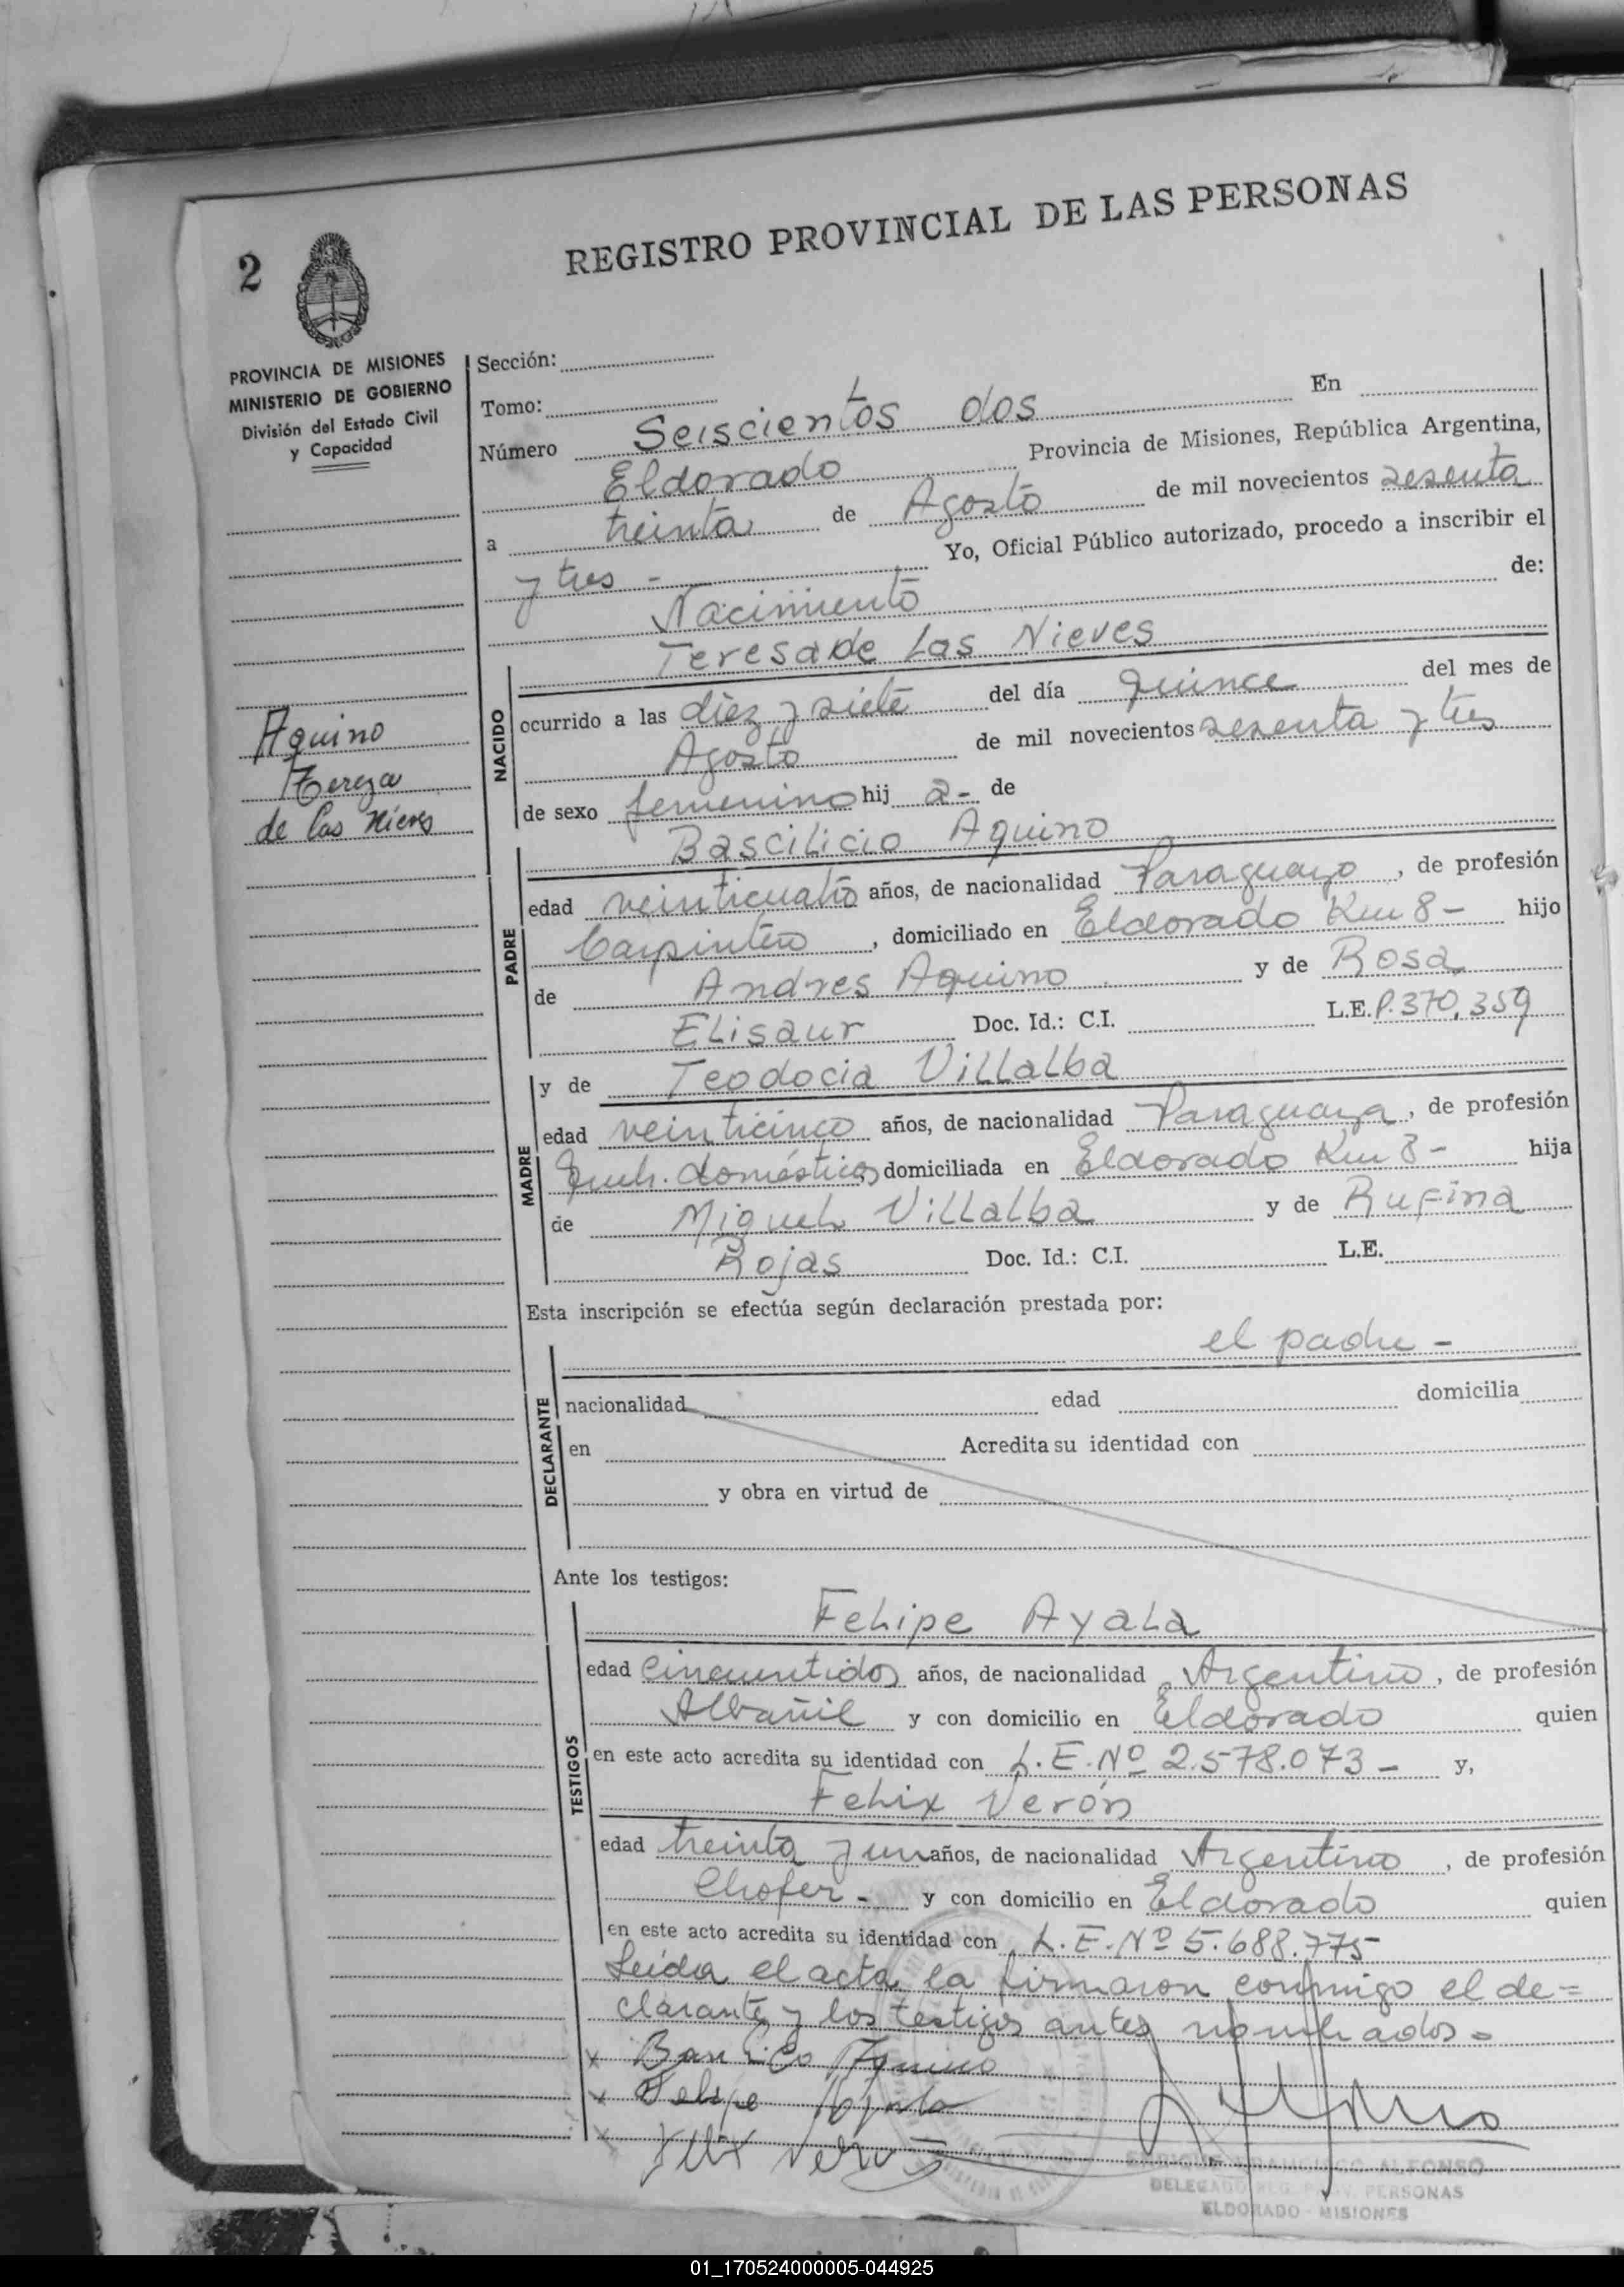 REGISTRO PROVINCIAL DE LAS PERSONAS
2
PROVINCIA DE MISIONES
MINISTERIO DE GOBIERNO
División del Estado Civil
y Capacidad
Aquino
Tereza
de las Nieves
Sección:
Tomo:
Número Seiscientos dos En
Eldorado Provincia de Misiones, República Argentina,
a treinta de Agosto de mil novecientos sesenta
y tres - Yo, Oficial Público autorizado, procedo a inscribir el
Nacimiento de:
NACIDO
Teresa de Las Nieves
ocurrido a las diez y siete del día quince del mes de
Agosto de mil novecientos sesenta y tres
de sexo femenino hij a- de
PADRE
Bascilicio Aquino
edad veinticuatro años, de nacionalidad Paraguayo, de profesión
Carpintero, domiciliado en Eldorado Km 8 - hijo
de Andres Aquino y de Rosa
Elisaur Doc. Id.: C.I. L.E. P. 370,359
MADRE
y de Teodocia Villalba
edad veinticinco años, de nacionalidad Paraguaya, de profesión
Queh. domésticos domiciliada en Eldorado Km 8 - hija
de Miguel Villalba y de Rufina
Rojas Doc. Id.: C.I. L.E.
Esta inscripción se efectúa según declaración prestada por:
el padre -
DECLARANTE
nacionalidad edad domicilia
en Acredita su identidad con
y obra en virtud de
Ante los testigos:
TESTIGOS
Felipe Ayala
edad cincuentidos años, de nacionalidad Argentino, de profesión
Albañil y con domicilio en Eldorado quien
en este acto acredita su identidad con L.E. Nº 2.578.073 - y,
Felix Verón
edad treinta y un años, de nacionalidad Argentino, de profesión
Chofer - y con domicilio en Eldorado quien
en este acto acredita su identidad con L.E. Nº 5.688.775
Leída el acta, la firmaron conmigo el de=
clarante y los testigos antes nombrados =
x Aquino
x Felipe Ayala
x Felix Veron
ENRIQUE FRANCISCO ALFONSO
DELEGADO REG. PROV. PERSONAS
ELDORADO - MISIONES
01_170524000005-044925